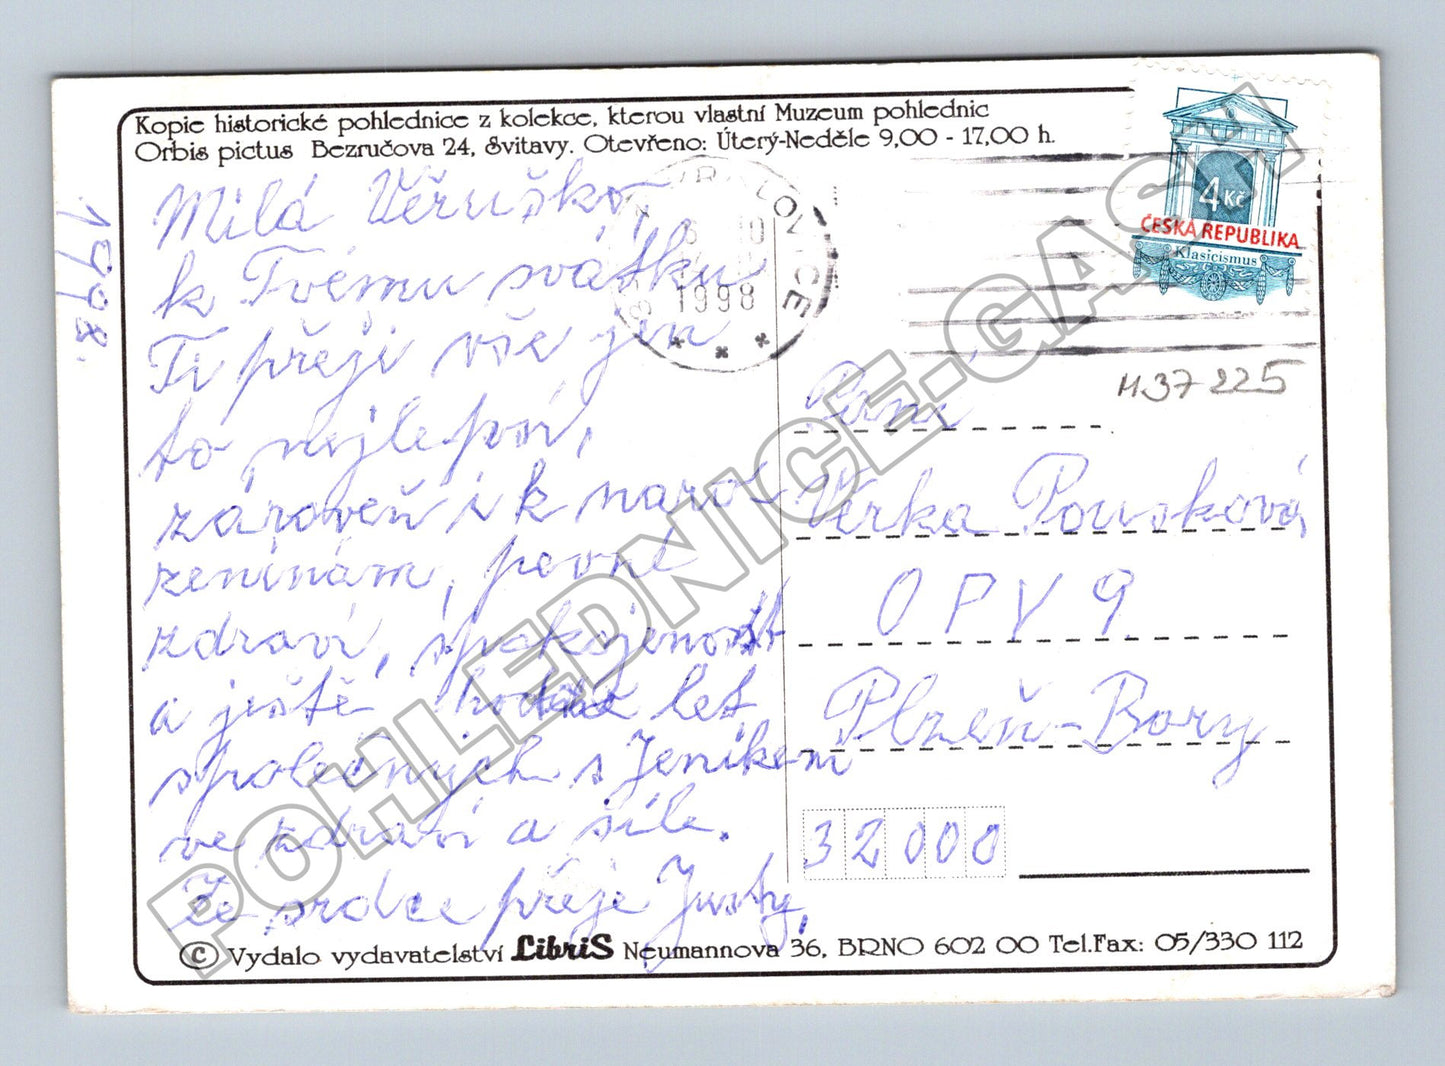 Kopie historické pohlednice z kolekce, kterou vlastní Muzeum pohlednic
Orbis pictus Bezručova 24, Svitavy. Otevřeno: Úterý-Neděle 9,00 - 17,00 h.
1998.
Milá Věruško,
k Tvému svátku
Ti přeji vše jen
to nejlepší,
zároveň i k naro-
zeninám, pevné
zdraví, spokojenost
a ještě hodně let
společných s Jeníkem
ve zdraví a síle.
Ze srdce přeje
1998
4 Kč
ČESKÁ REPUBLIKA
Klasicismus
H37225
Paní
Věrka Pousková,
O P V 9.
Plzeň-Bory
32000
© Vydalo vydavatelství LibriS Neumannova 36, BRNO 602 00 Tel.Fax: 05/330 112
POHLEDNICE-GASH